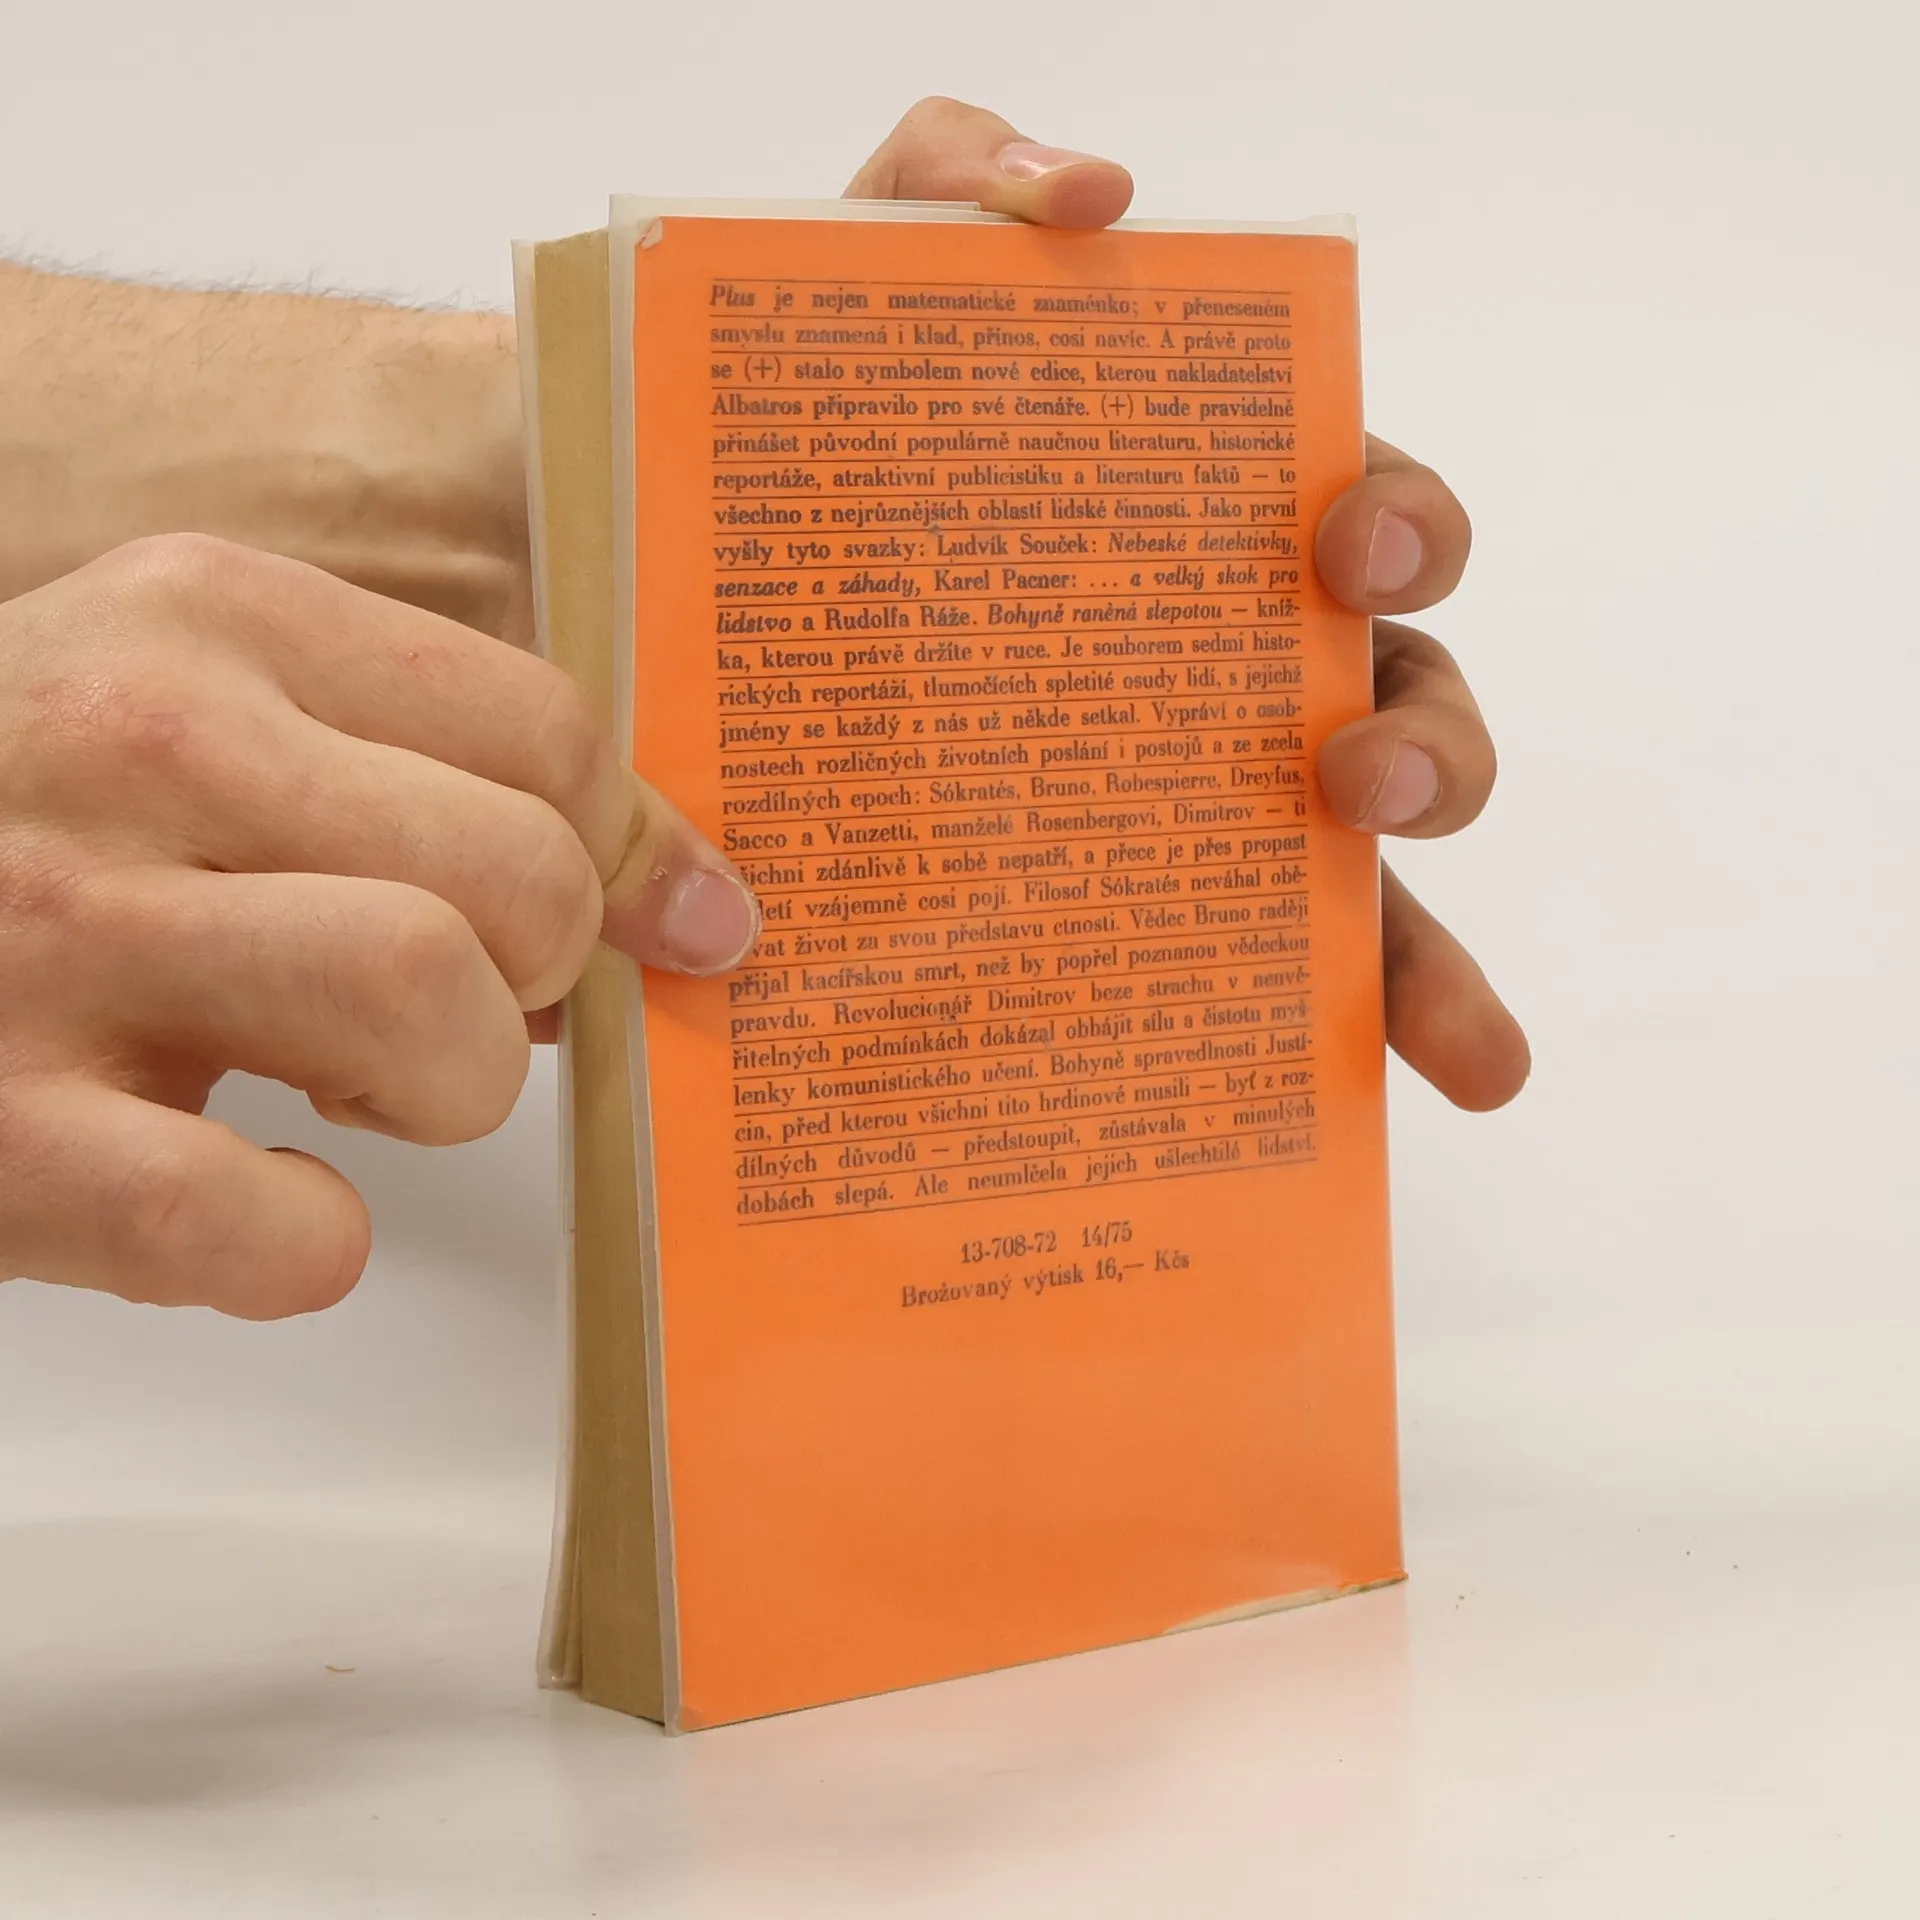 Plus je nejen matematické znaménko; v přeneseném
smyslu znamená i klad, přínos, cosi navíc. A právě proto
se (+) stalo symbolem nové edice, kterou nakladatelství
Albatros připravilo pro své čtenáře. (+) bude pravidelně
přinášet původní populárně naučnou literaturu, historické
reportáže, atraktivní publicistiku a literaturu faktů — to
všechno z nejrůznějších oblastí lidské činnosti. Jako první
vyšly tyto svazky: Ludvík Souček: Nebeské detektivky,
senzace a záhady, Karel Pacner: ... a velký skok pro
lidstvo a Rudolfa Ráže. Bohyně raněná slepotou — kníž-
ka, kterou právě držíte v ruce. Je souborem sedmi histo-
rických reportáží, tlumočících spletité osudy lidí, s jejichž
jmény se každý z nás už někde setkal. Vypráví o osob-
nostech rozličných životních poslání i postojů a ze zcela
rozdílných epoch: Sókratés, Bruno, Robespierre, Dreyfus,
Sacco a Vanzetti, manželé Rosenbergovi, Dimitrov — ti
ichni zdánlivě k sobě nepatří, a přece je přes propast
letí vzájemně cosi pojí. Filosof Sókratés neváhal obě-
vat život za svou představu ctnosti. Vědec Bruno raději
přijal kacířskou smrt, než by popřel poznanou vědeckou
pravdu. Revolucionář Dimitrov beze strachu v neuvě-
řitelných podmínkách dokázal obhájit sílu a čistotu myš-
lenky komunistického učení. Bohyně spravedlnosti Justi-
cia, před kterou všichni tito hrdinové musili — byť z roz-
dílných důvodů — předstoupit, zůstávala v minulých
dobách slepá. Ale neumlčela jejich ušlechtilé lidství.
13-708-72 14/75
Brožovaný výtisk 16,— Kčs